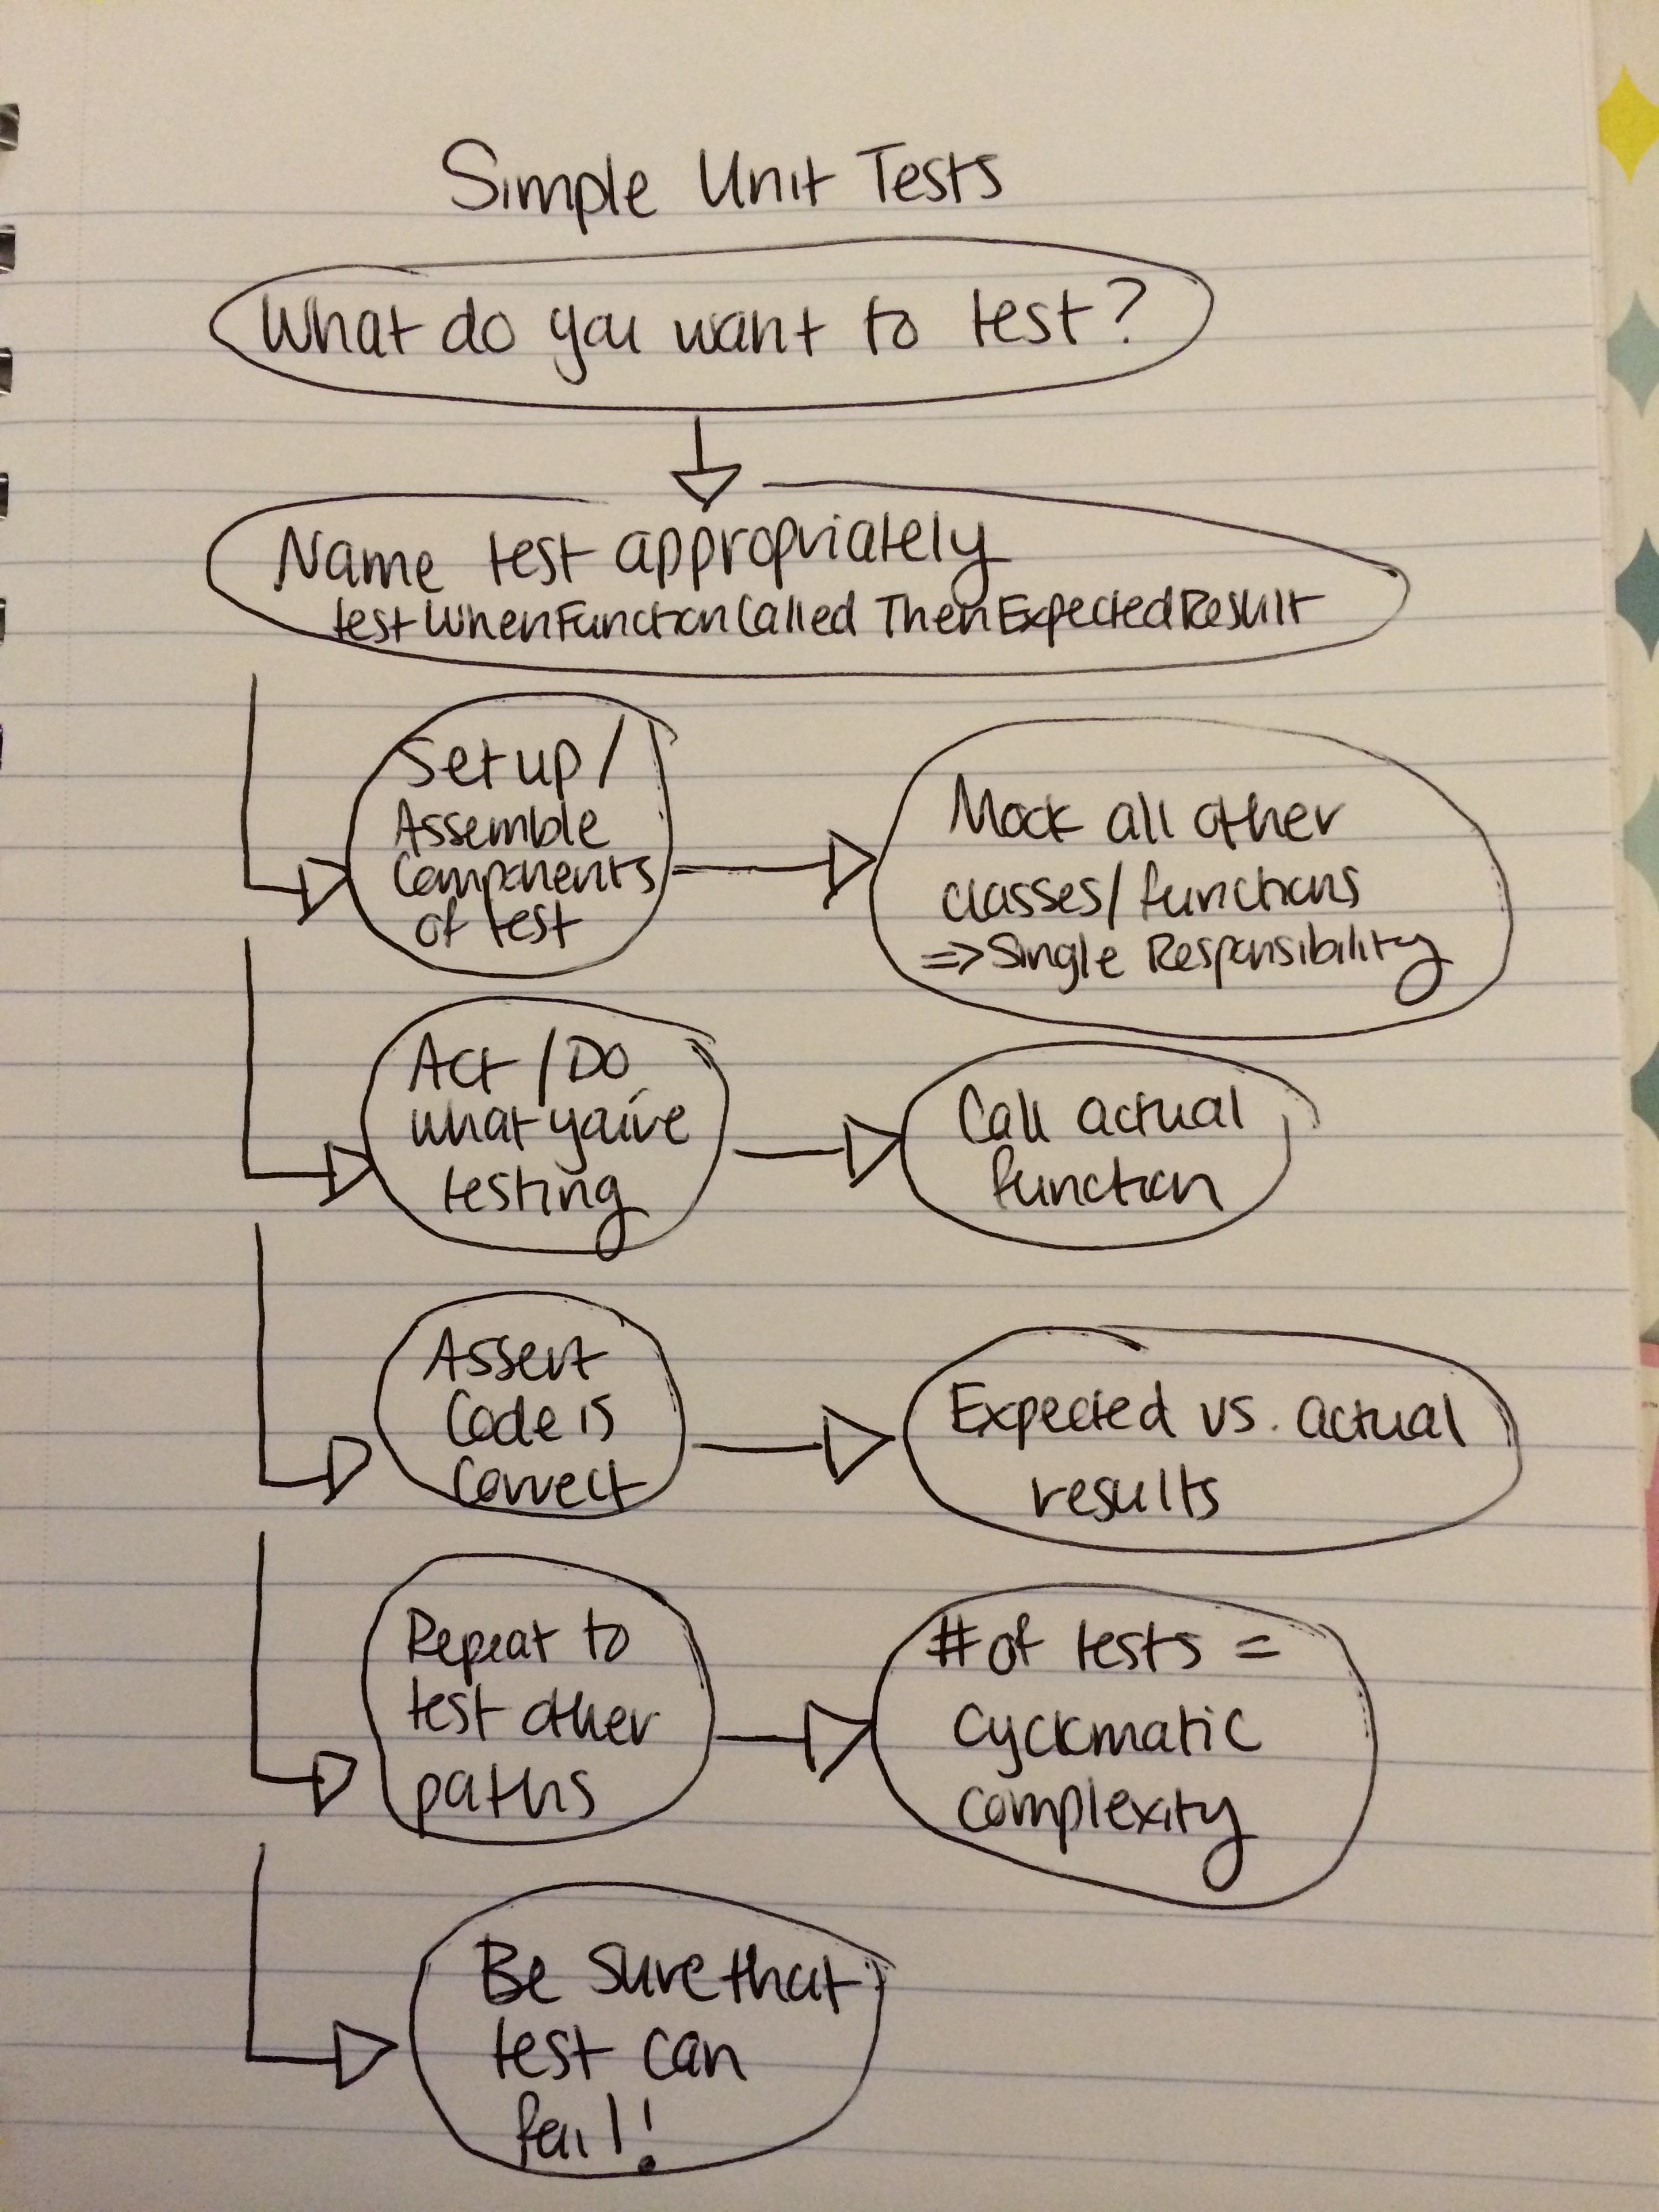 Simple Unit Tests
What do you want to test?
Name test appropriately
testWhenFunctionCalledThenExpectedResult
Set up /
Assemble
Components
of test
Mock all other
classes/functions
=> Single Responsibility
Act / Do
what you're
testing
Call actual
function
Assert
Code is
Correct
Expected vs. actual
results
Repeat to
test other
paths
# of tests =
cyclomatic
complexity
Be sure that
test can
fail!